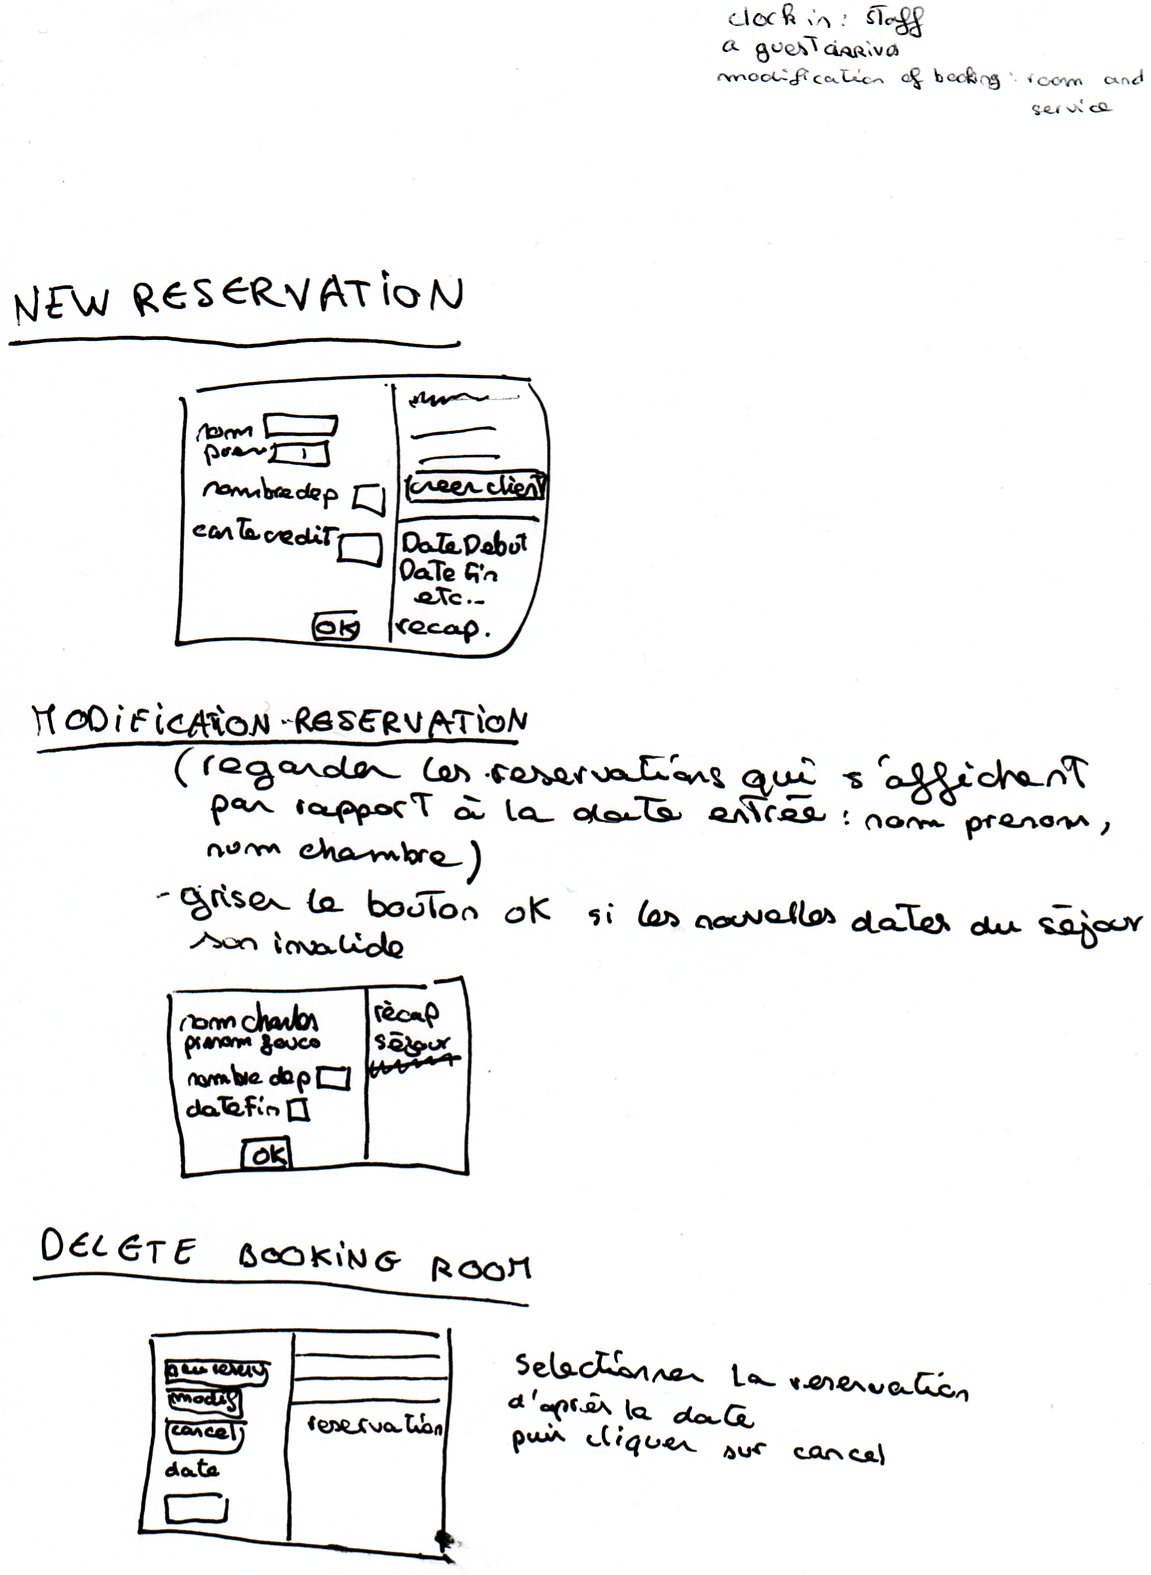 clock in : staff
a guest arriva
modification of booking : room and
service
NEW RESERVATION
nom
pren
nombre dep
carte credit
OK
creer client
Date Debut
Date fin
etc..
recap.
MODIFICATION RESERVATION
(regarder les reservations qui s'affichent
par rapport à la date entrée : nom prenom,
num chambre)
- griser le bouton OK si les nouvelles dates du séjour
son invalide
nom Charles
prenom
nombre dep
date fin
OK
récap
séjour
DELETE BOOKING ROOM
new reserv
modif
cancel
date
reservation
selectionner la reservation
d'après la date
puis cliquer sur cancel